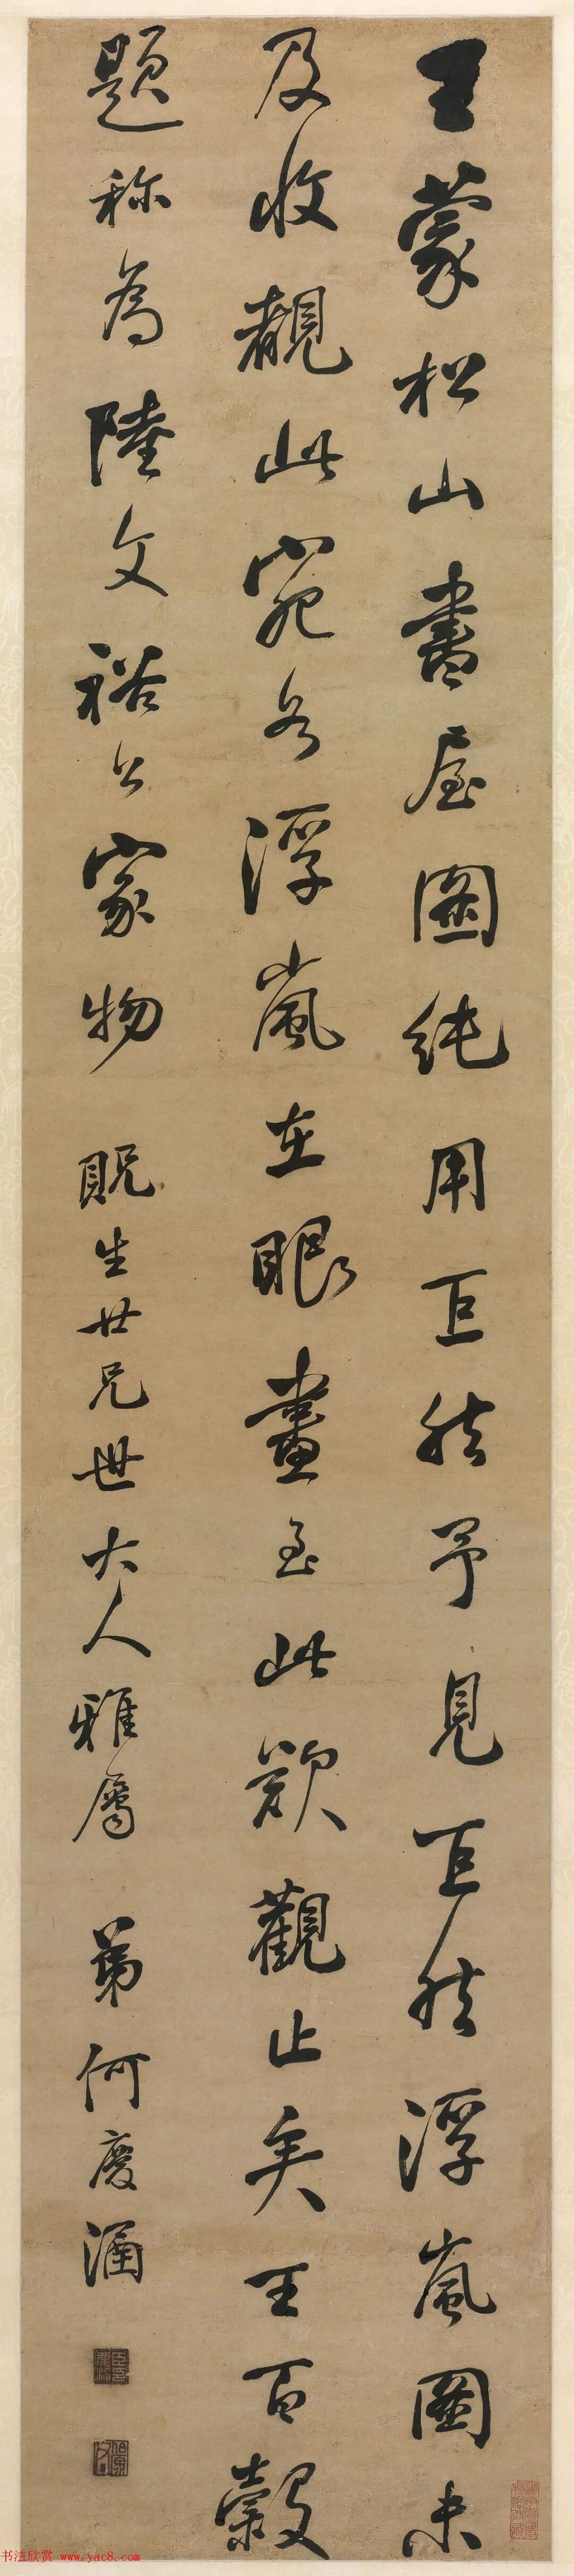 王蒙松山書屋圖純用巨然予見巨然浮嵐圖未
及收覩此宛若浮嵐在眼畫至此歎觀止矣王百穀
題称為陸文裕公家物 貺生世兄世大人雅屬 弟何慶涵
书法欣赏 www.yac8.com